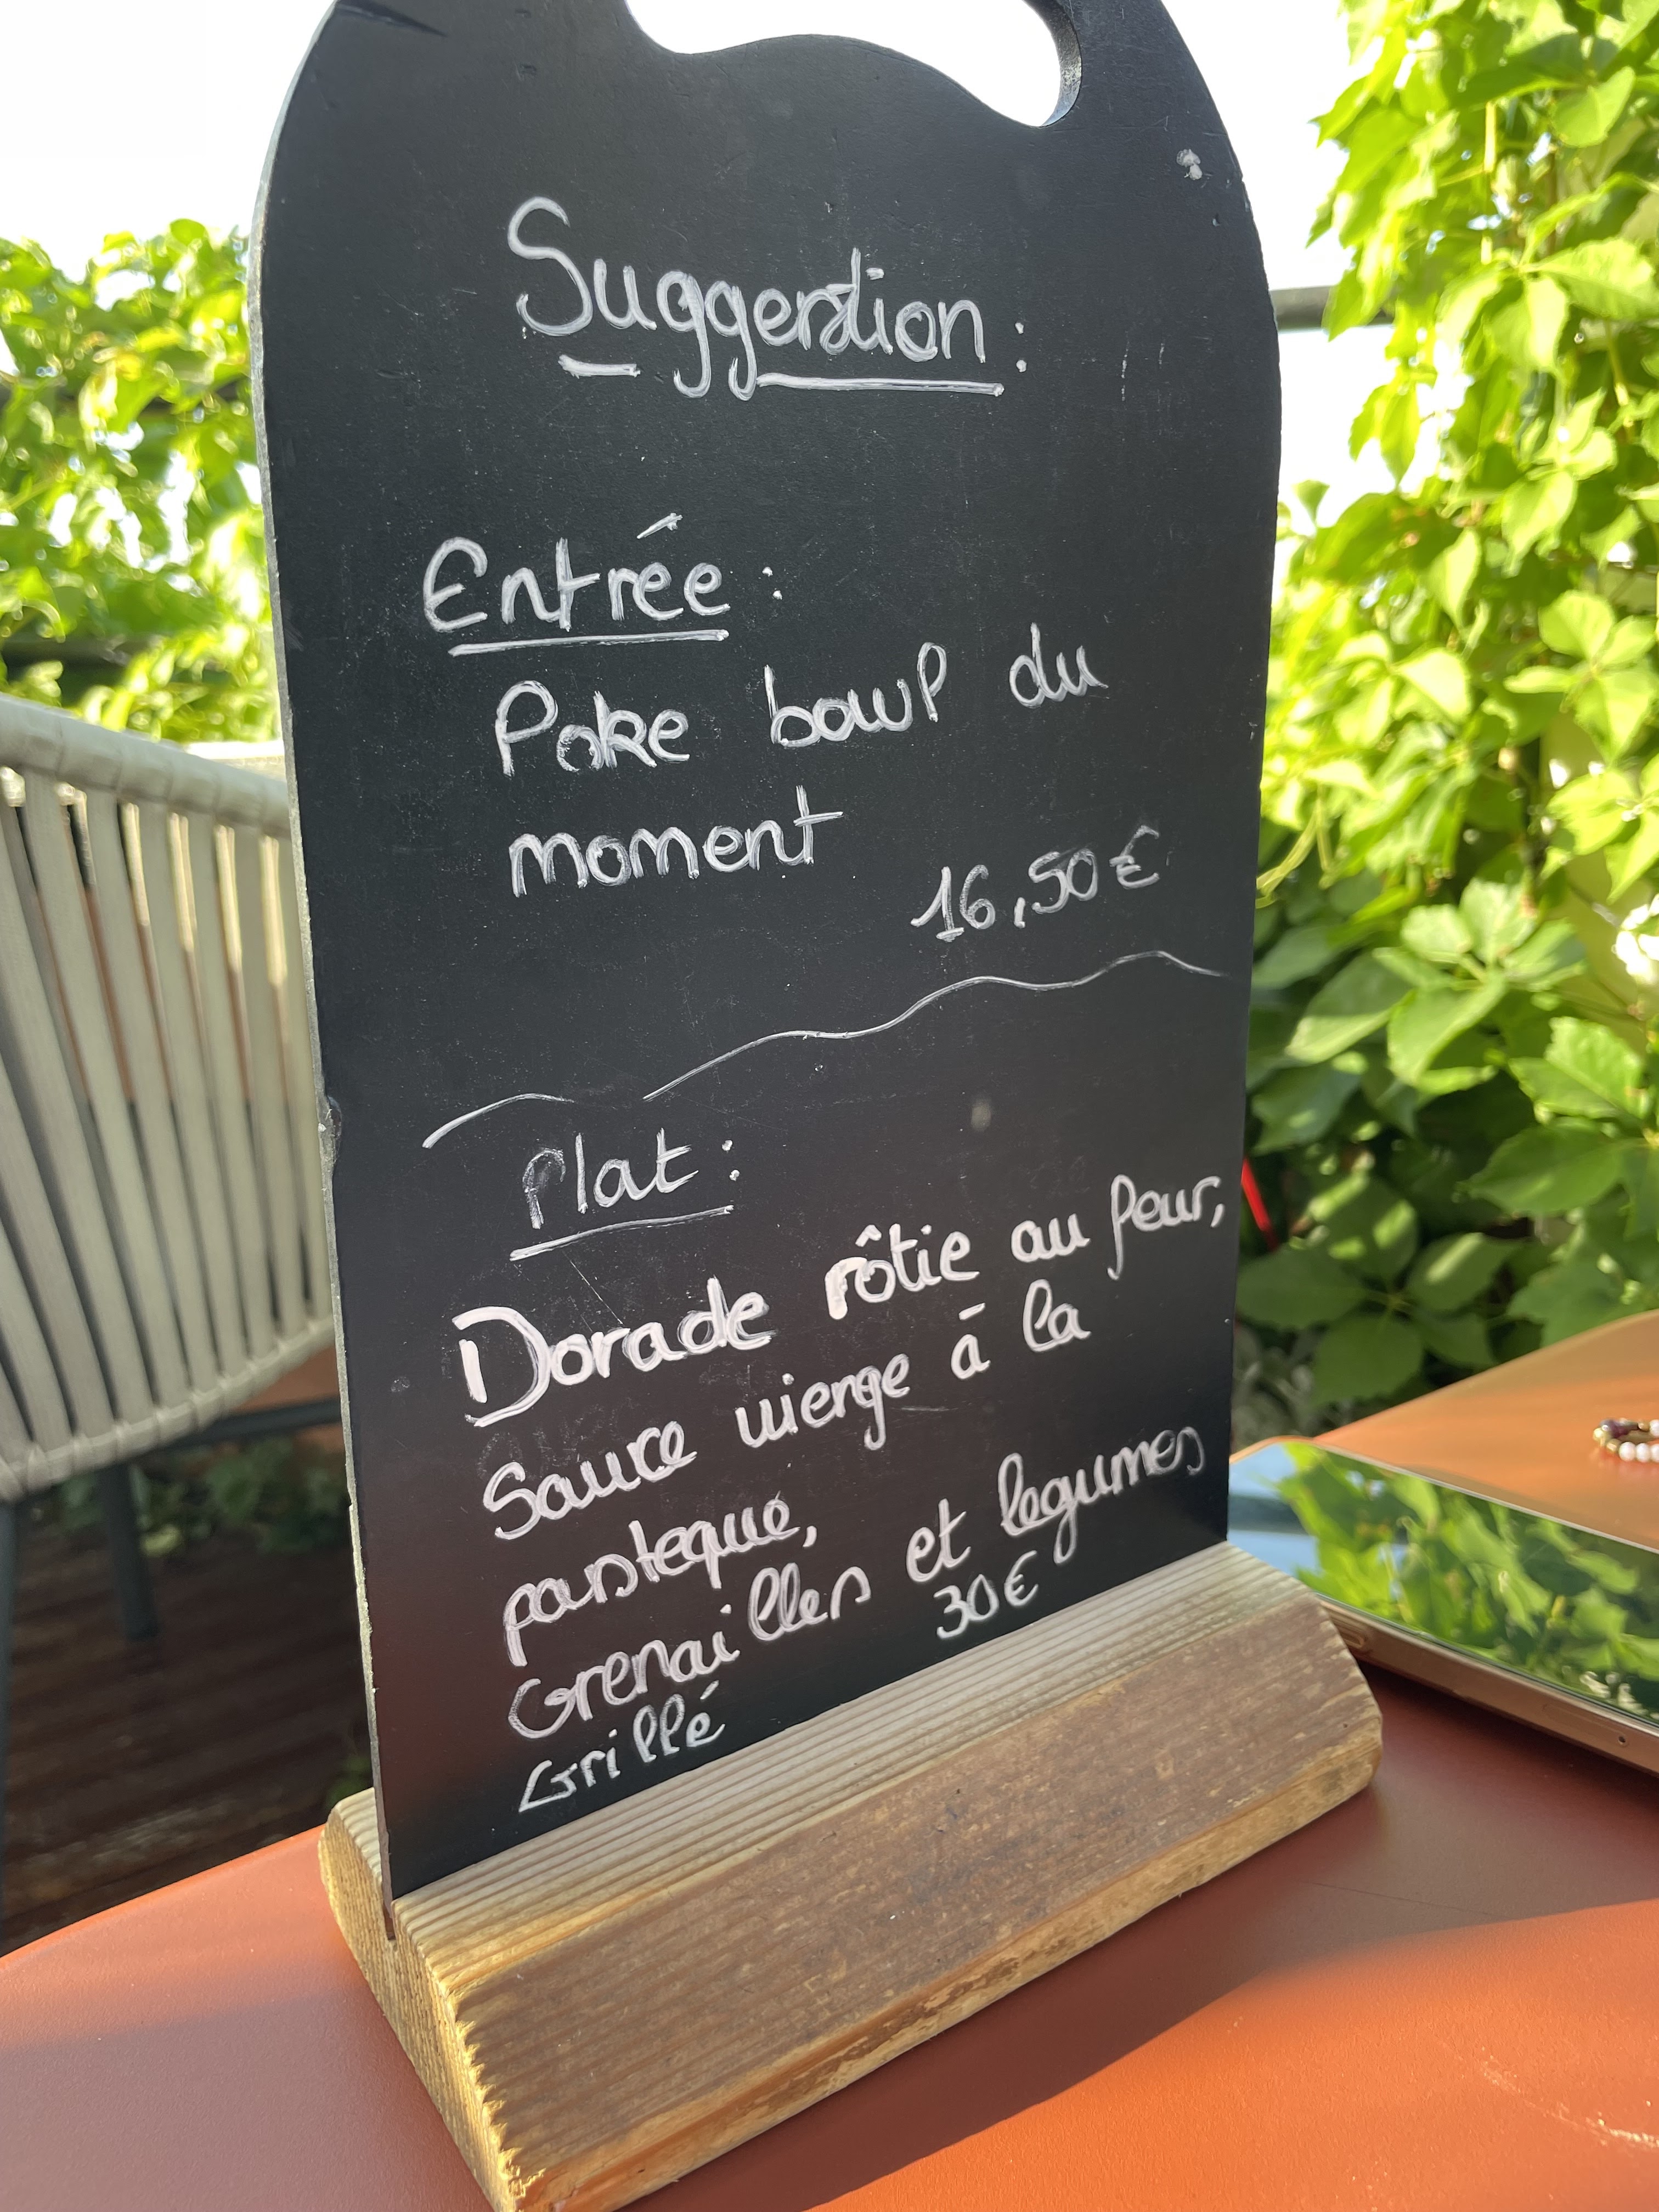 Suggestion :
Entrée :
Poke bowl du
moment
16,50 €
Plat :
Dorade rôtie au four,
Sauce vierge à la
pastèque,
Grenailles et legumes
30 €
Grillé